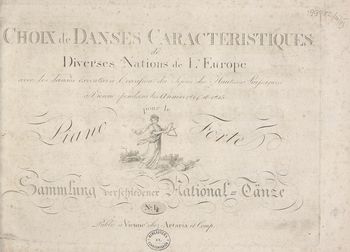 CHOIX de DANSES CARACTERISTIQUES
de
Diverses Nations de L'Europe
avec les
à Vienne pendant les Années 1814 et 1815
pour le
Piano Forte
Sammlung verschiedener National=Tänze
No. 4
Publié à Vienne chez Artaria et Comp.